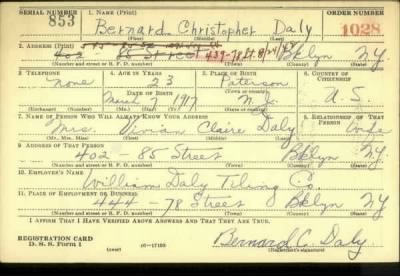 SERIAL NUMBER 1. NAME (Print) ORDER NUMBER
853 Bernard Christopher Daly 1028
(First) (Middle) (Last)
2. ADDRESS (Print)
402 85 Street 439-78 St. Bklyn N.Y.
(Number and street or R. F. D. number) (Town) (County) (State)
3. TELEPHONE 4. AGE IN YEARS 5. PLACE OF BIRTH 6. COUNTRY OF CITIZENSHIP
none 23 Paterson
DATE OF BIRTH (Town or county)
March 7 1917 N.J. U.S.
(Exchange) (Number) (Mo.) (Day) (Yr.) (State or country)
7. NAME OF PERSON WHO WILL ALWAYS KNOW YOUR ADDRESS 8. RELATIONSHIP OF THAT PERSON
Mrs. Vivian Claire Daly Wife
(Mr., Mrs., Miss) (First) (Middle) (Last)
9. ADDRESS OF THAT PERSON
402 85 Street Bklyn NY
(Number and street or R. F. D. number) (Town) (County) (State)
10. EMPLOYER'S NAME
William Daly Tiling Co.
11. PLACE OF EMPLOYMENT OR BUSINESS
444 - 78 Street Bklyn NY
(Number and street or R. F. D. number) (Town) (County) (State)
I AFFIRM THAT I HAVE VERIFIED ABOVE ANSWERS AND THAT THEY ARE TRUE.
REGISTRATION CARD
D. S. S. Form 1 (over) 16—17105 Bernard C. Daly.
(Registrant's signature)